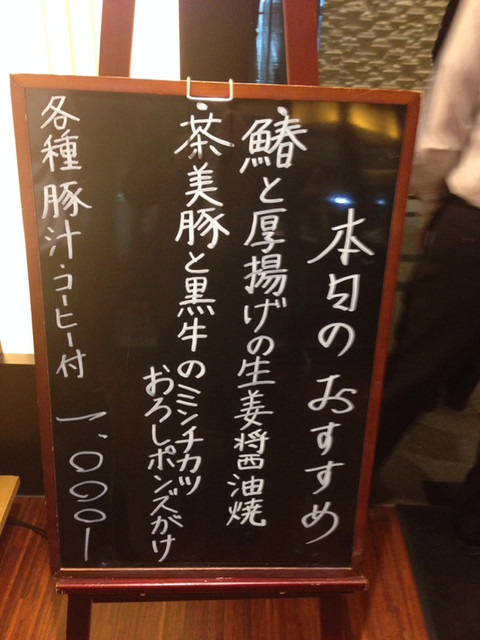 本日のおすすめ
・鰆と厚揚げの生姜醤油焼
・茶美豚と黒牛のミンチカツ
おろしポンズがけ
各種豚汁・コーヒー付 一、〇〇〇ー